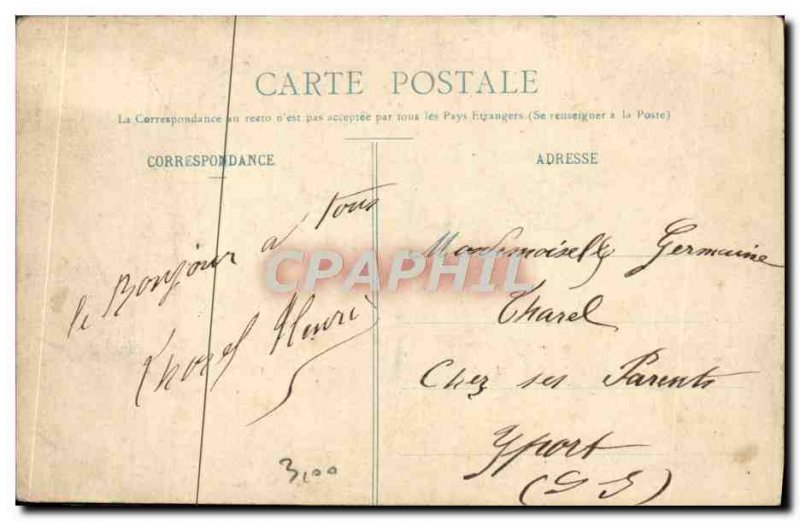 CARTE POSTALE
La Correspondance au recto n'est pas acceptée par tous les Pays Etrangers (Se renseigner à la Poste)
CORRESPONDANCE
le Bonjour a tous
Henri
3,00
ADRESSE
Mademoiselle Germaine
Tharel
Chez ses Parents
Yport
CPAPHIL